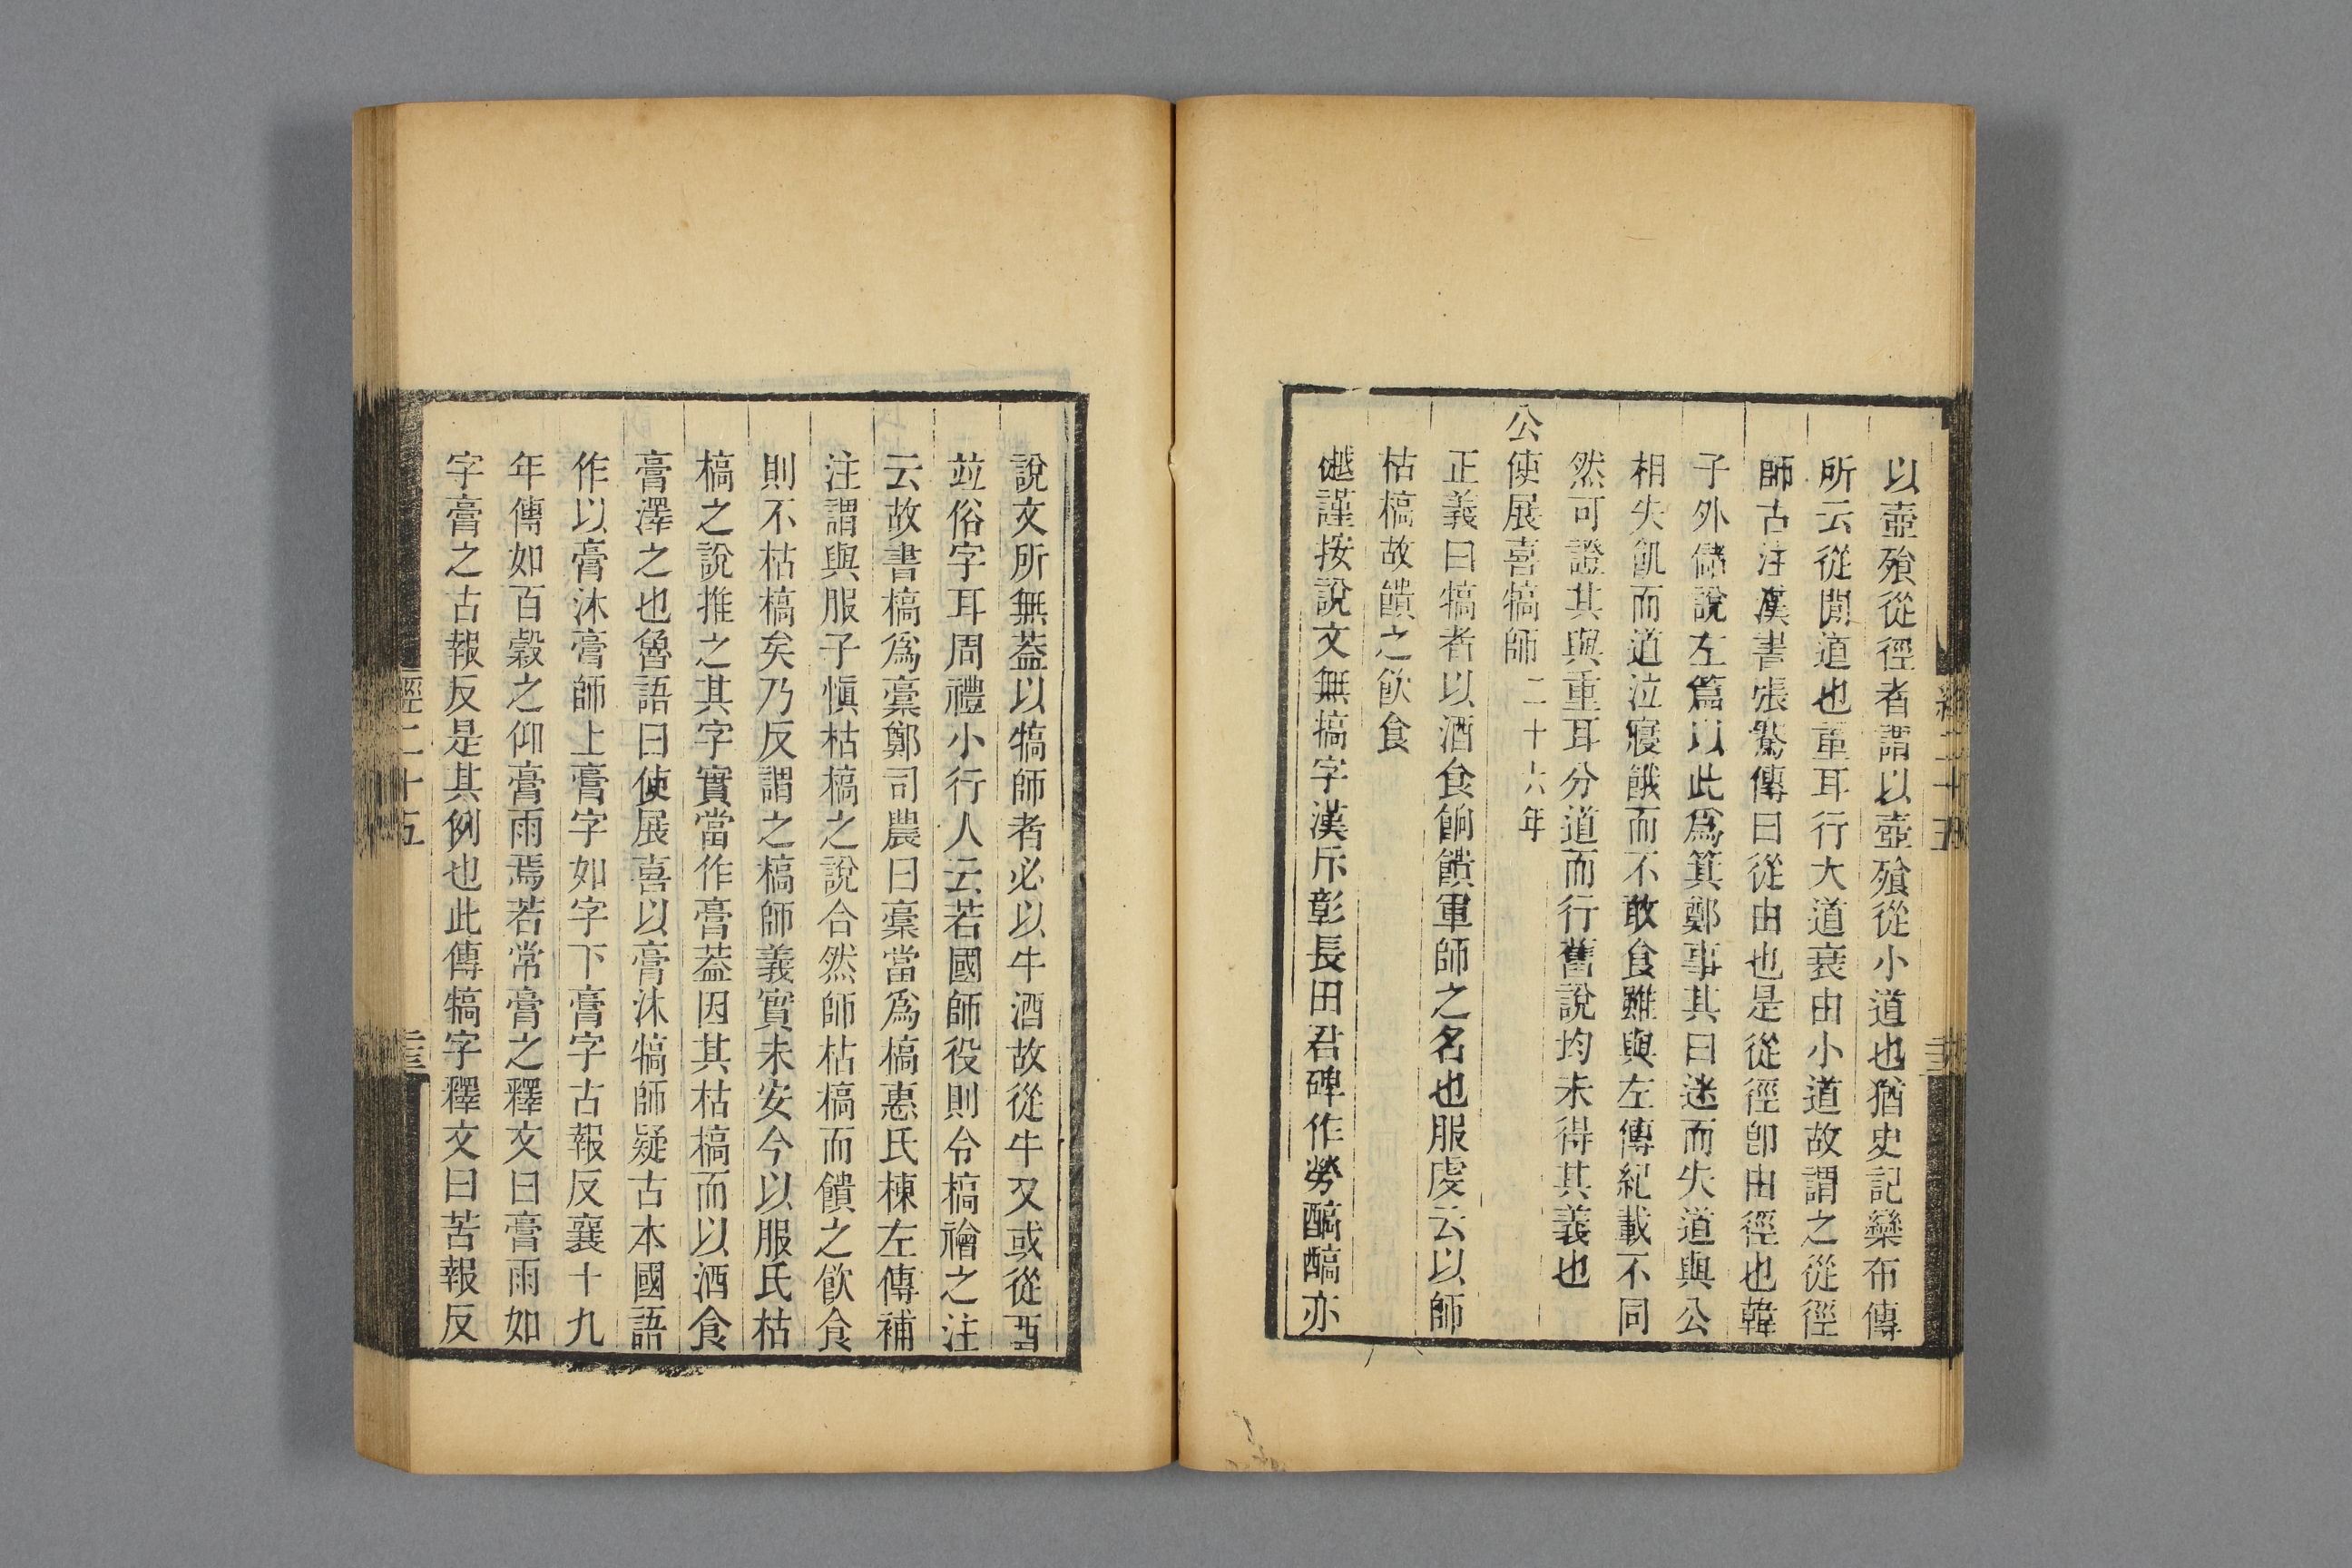 以壺飱從徑者謂以壺飱從小道也猶史記欒布傳
所云從閒道也重耳行大道衰由小道故謂之從徑
師古注漢書張騫傳曰從由也是從徑卽由徑也韓
子外儲說左篇以此爲箕鄭事其曰迷而失道與公
相失飢而道泣寢餓而不敢食雖與左傳紀載不同
然可證其與重耳分道而行舊說均未得其義也
公使展喜犒師二十六年
正義曰犒者以酒食餉饋軍師之名也服虔云以師
枯槁故饋之飮食
樾謹按說文無犒字漢斥彰長田君碑作勞醕酳亦
說文所無葢以犒師者必以牛酒故從牛又或從酉
竝俗字耳周禮小行人云若國師役則令槁禬之注
云故書槁爲稾鄭司農曰稾當爲槁惠氏棟左傳補
注謂與服子愼枯槁之說合然師枯槁而饋之飮食
則不枯槁矣乃反謂之槁師義實未安今以服氏枯
槁之說推之其字實當作膏葢因其枯槁而以酒食
膏澤之也魯語曰使展喜以膏沐犒師疑古本國語
作以膏沐膏師上膏字如字下膏字古報反襄十九
年傳如百穀之仰膏雨焉若常膏之釋文曰膏雨如
字膏之古報反是其例也此傳犒字釋文曰苦報反
經二十五